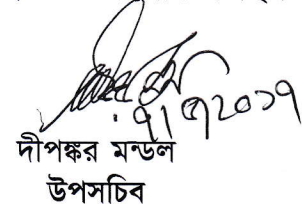 ৭/৭/২০১৭
দীপঙ্কর মন্ডল
উপসচিব